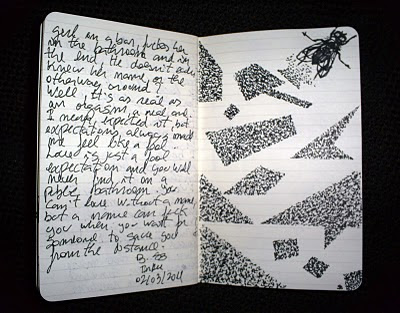 girl in a bar, fucks her
in the bathroom and in
the end, He doesn't even
knew her name, or the
otherway around.
Well, it's as real as
an orgasm, a real one.
I never expected it, but
expectations always would
me feel like a fool.
Love is just a fool
expectation and you will
never find it on a
public bathroom. You
can't love without a name
but a name can fuck
you when you want for
someone to save you
from the distance.
02/03/2011